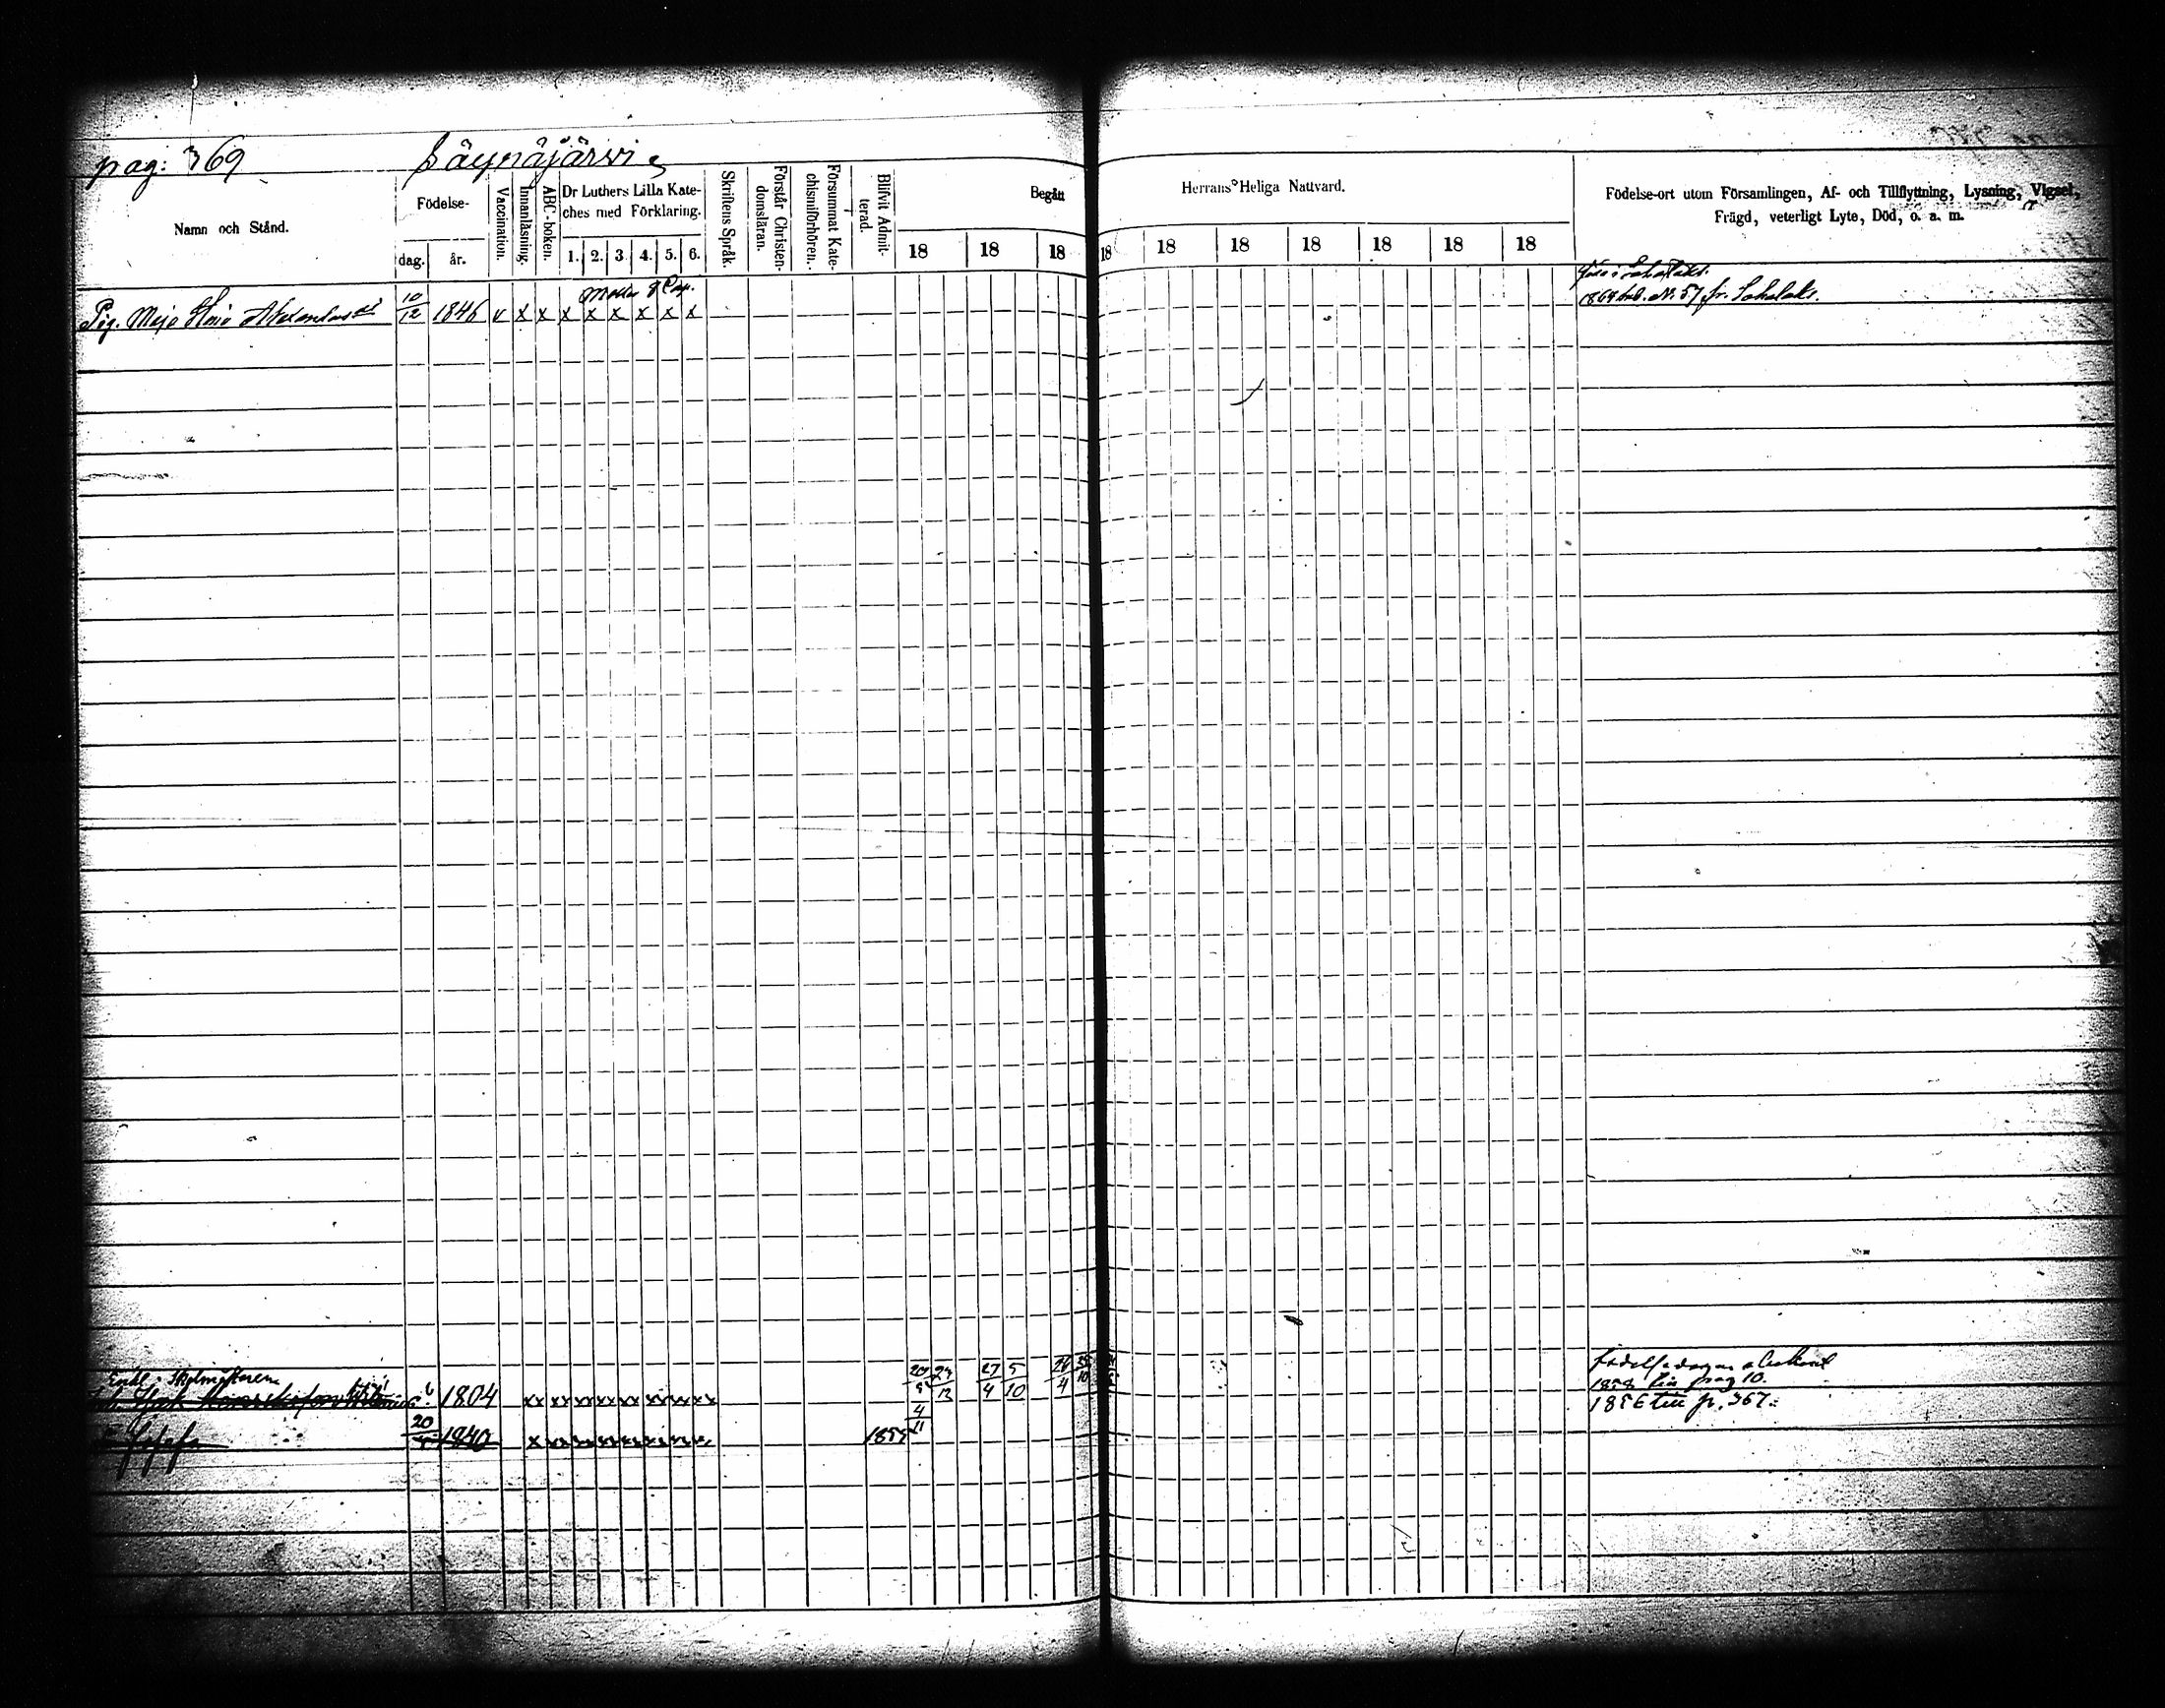 pag: 369 Säynäjärvi
Namn och Stånd.
Födelse-
dag. år.
Vaccination.
Innanläsning.
ABC-boken.
Dr Luthers Lilla Kate-
ches med Förklaring.
1. 2. 3. 4. 5. 6.
Skriftens Språk.
Förstår Christen-
domsläran.
Försummat Kate-
chismiförhören.
Blifvit Admit-
terad.
Begått Herrans Heliga Nattvard.
18 18 18 18 18 18 18 18 18 18
Födelse-ort utom Församlingen, Af- och Tillflyttning, Lysning, Vigsel,
Frägd, veterligt Lyte, Död, o. a. m.
Pig. Maja Stina 10/12 1846 v x x x x x x x x
1868 No. 57 fr. Sahalaks.
1804 xx xx xx xx xx xx xx xx 20 24 27 5 4 10
1858 pag 10.
1856 till p. 367.
20 1840 1855 4/11